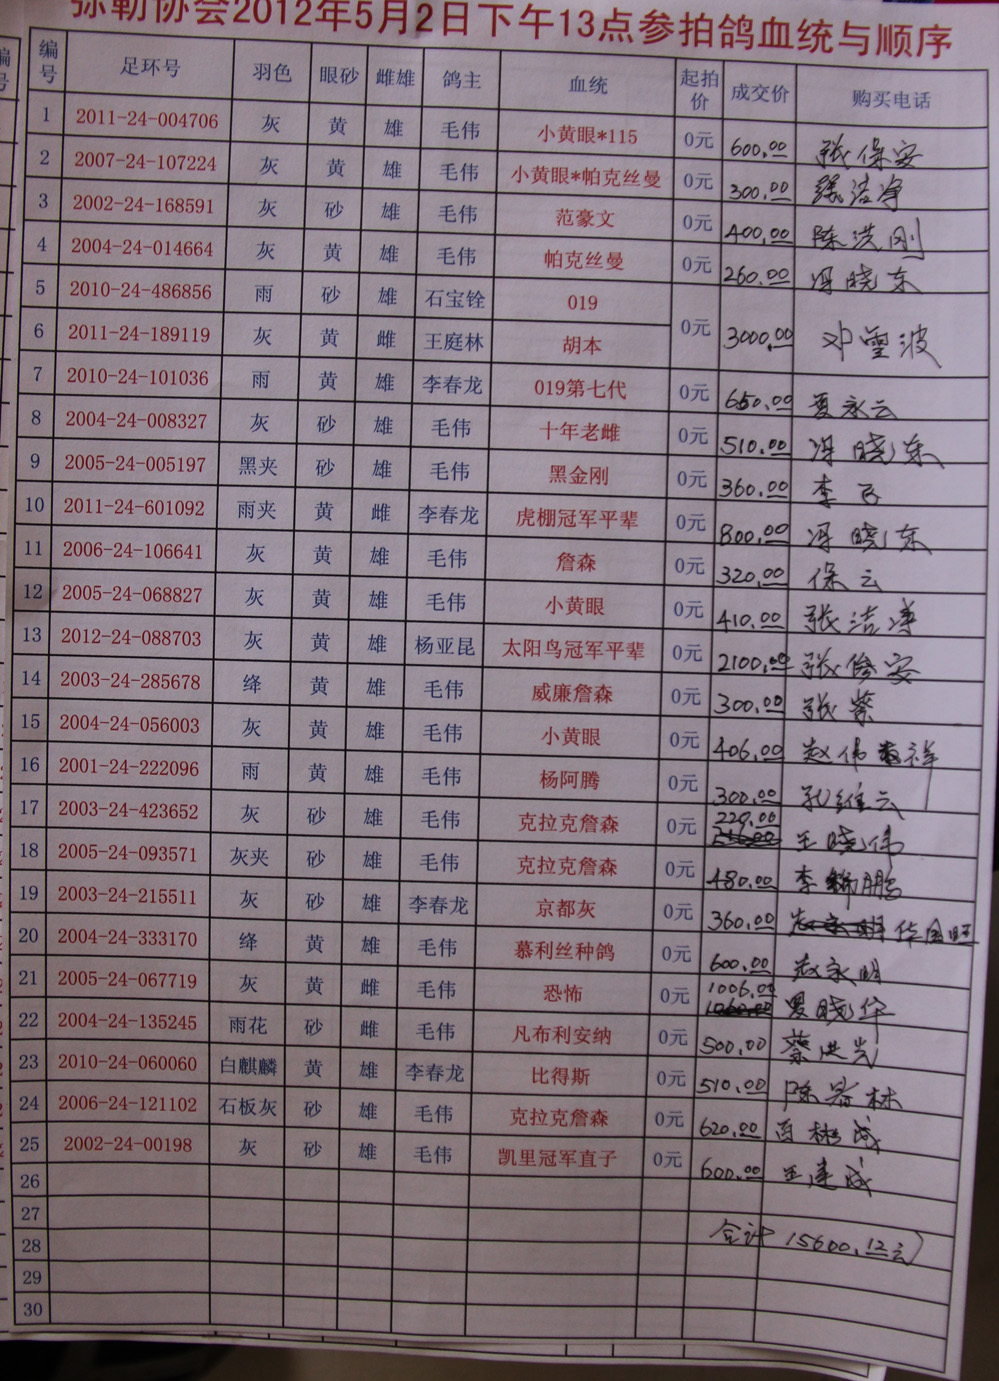 弥勒协会2012年5月2日下午13点参拍鸽血统与顺序
编号 足环号 羽色 眼砂 雌雄 鸽主 血统 起拍价 成交价 购买电话
1 2011-24-004706 灰 黄 雄 毛伟 小黄眼*115 0元 600.00 张保安
2 2007-24-107224 灰 黄 雄 毛伟 小黄眼*帕克丝曼 0元 300.00 张洁净
3 2002-24-168591 灰 砂 雄 毛伟 范豪文 0元 400.00 陈洪刚
4 2004-24-014664 灰 黄 雄 毛伟 帕克丝曼 0元 260.00 冯晓东
5 2010-24-486856 雨 砂 雄 石宝铨 019 0元 3000.00 邓雪波
6 2011-24-189119 灰 黄 雌 王庭林 胡本
7 2010-24-101036 雨 黄 雄 李春龙 019第七代 0元 650.00 夏永云
8 2004-24-008327 灰 砂 雄 毛伟 十年老雌 0元 510.00 冯晓东
9 2005-24-005197 黑夹 砂 雄 毛伟 黑金刚 0元 360.00 李
10 2011-24-601092 雨夹 黄 雌 李春龙 虎棚冠军平辈 0元 800.00 冯晓东
11 2006-24-106641 灰 黄 雄 毛伟 詹森 0元 320.00 保云
12 2005-24-068827 灰 黄 雄 毛伟 小黄眼 0元 410.00 张洁净
13 2012-24-088703 灰 黄 雄 杨亚昆 太阳鸟冠军平辈 0元 2100.00 张保安
14 2003-24-285678 绛 黄 雄 毛伟 威廉詹森 0元 300.00 张紫
15 2004-24-056003 灰 黄 雄 毛伟 小黄眼 0元 406.00 赵伟祥
16 2001-24-222096 雨 黄 雄 毛伟 杨阿腾 0元 300.00 孔维云
17 2003-24-423652 灰 砂 雄 毛伟 克拉克詹森 0元 229.00 王晓伟
18 2005-24-093571 灰夹 砂 雄 毛伟 克拉克詹森 0元 480.00 李鹏
19 2003-24-215511 灰 砂 雄 李春龙 京都灰 0元 360.00 华国照
20 2004-24-333170 绛 黄 雄 毛伟 慕利丝种鸽 0元 600.00 赵永明
21 2005-24-067719 灰 黄 雌 毛伟 恐怖 0元 1006.00 晓华
22 2004-24-135245 雨花 砂 雌 毛伟 凡布利安纳 0元 500.00 蔡洪光
23 2010-24-060060 白麒麟 黄 雄 李春龙 比得斯 0元 510.00 陈林
24 2006-24-121102 石板灰 砂 雄 毛伟 克拉克詹森 0元 620.00 成
25 2002-24-00198 灰 砂 雄 毛伟 凯里冠军直子 0元 600.00 王建成
26
27
28 合计 15600.12元
29
30